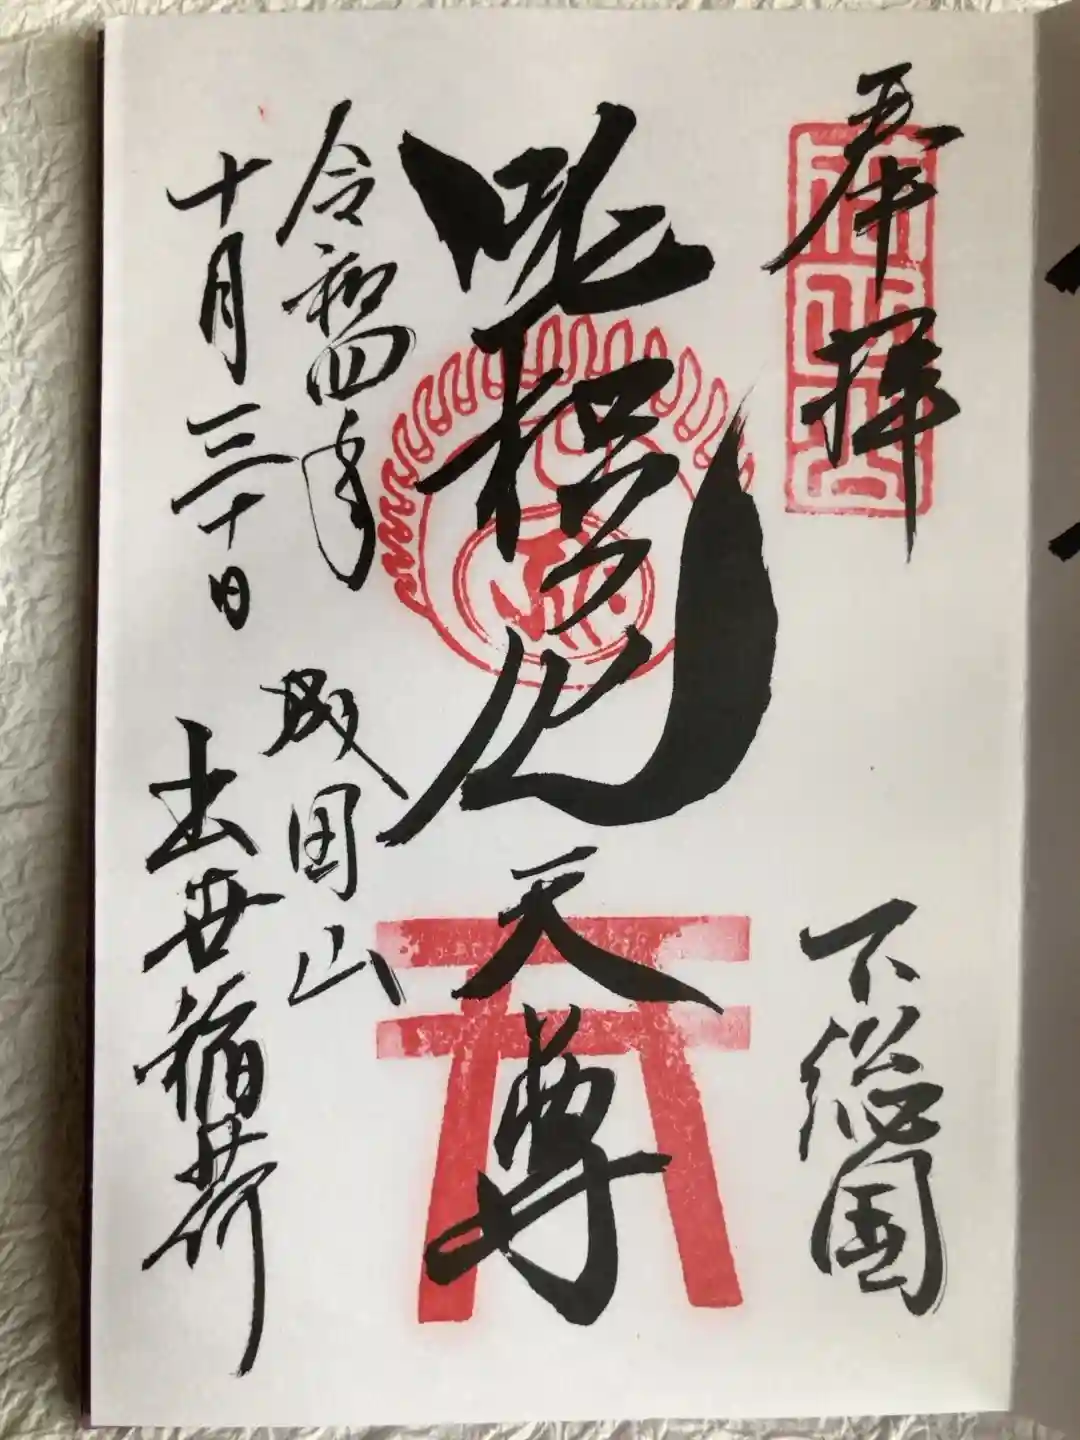 奉拝
下総国
吒枳尼天尊
令和四年
十月三十日
成田山
出世稲荷